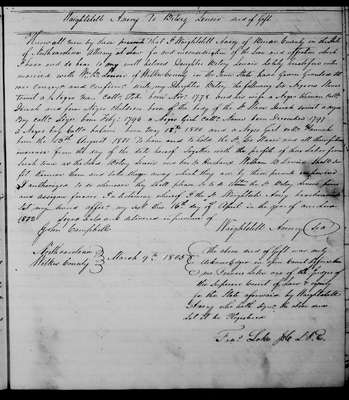 Wrightstill Avery To Betsey Lenoir deed of gift
Know all men by these presents that I Wrightstill Avery of Burke County in the State
of North carolina Attorney at Law for and in consideration of the Love and affection which
I have and do bear to my well beloved Daughter Betsey Lenoir lately
married with Wm B. Lenoir of Wilkes County in the same State have given granted
over conveyed and confirmed unto my Daughter Betsey the following six Negroes Slaves
to wit a Negro man call'd born Nov. 1778 and his wife a Negro Woman call'd
Hannah and four Negro children born of the body of the sd. Hannah to wit a Negro
Boy call'd born Feby. 1796 a Negro Girl call'd born December 1797
a Negro boy call'd born May 18th 1800 and a Negro girl call'd Hannah
born the 13th August 1801 To have and to hold the sd. six Slaves and all their future
increase from the day of the date hereof Together with the profits of their labor from
such time as the said Betsey Lenoir and her sd. Husband William B. Lenoir shall
fit them and take them away which they are by these presents impowered
& authorized to do whenever they shall please to the sd. Betsey Lenoir heirs
and assigns forever In witness whereof I the sd. Wrightstill Avery have hereunto
set my hand & affix my seal this 16th day of April in the year of our Lord
1802
Signed Sealed and delivered in presence of
John Campbell Wrightstill Avery Sea
North carolina
Wilkes County March 9th 1803 The above deed of gift was
Acknowledged in open Court before
me Francis Locke one of the Judges of
the Superior Court of Law & equity
for the State aforesaid by Wrightstill
Avery who hath signed the above deed
Let it be Registered
Fra.s Locke